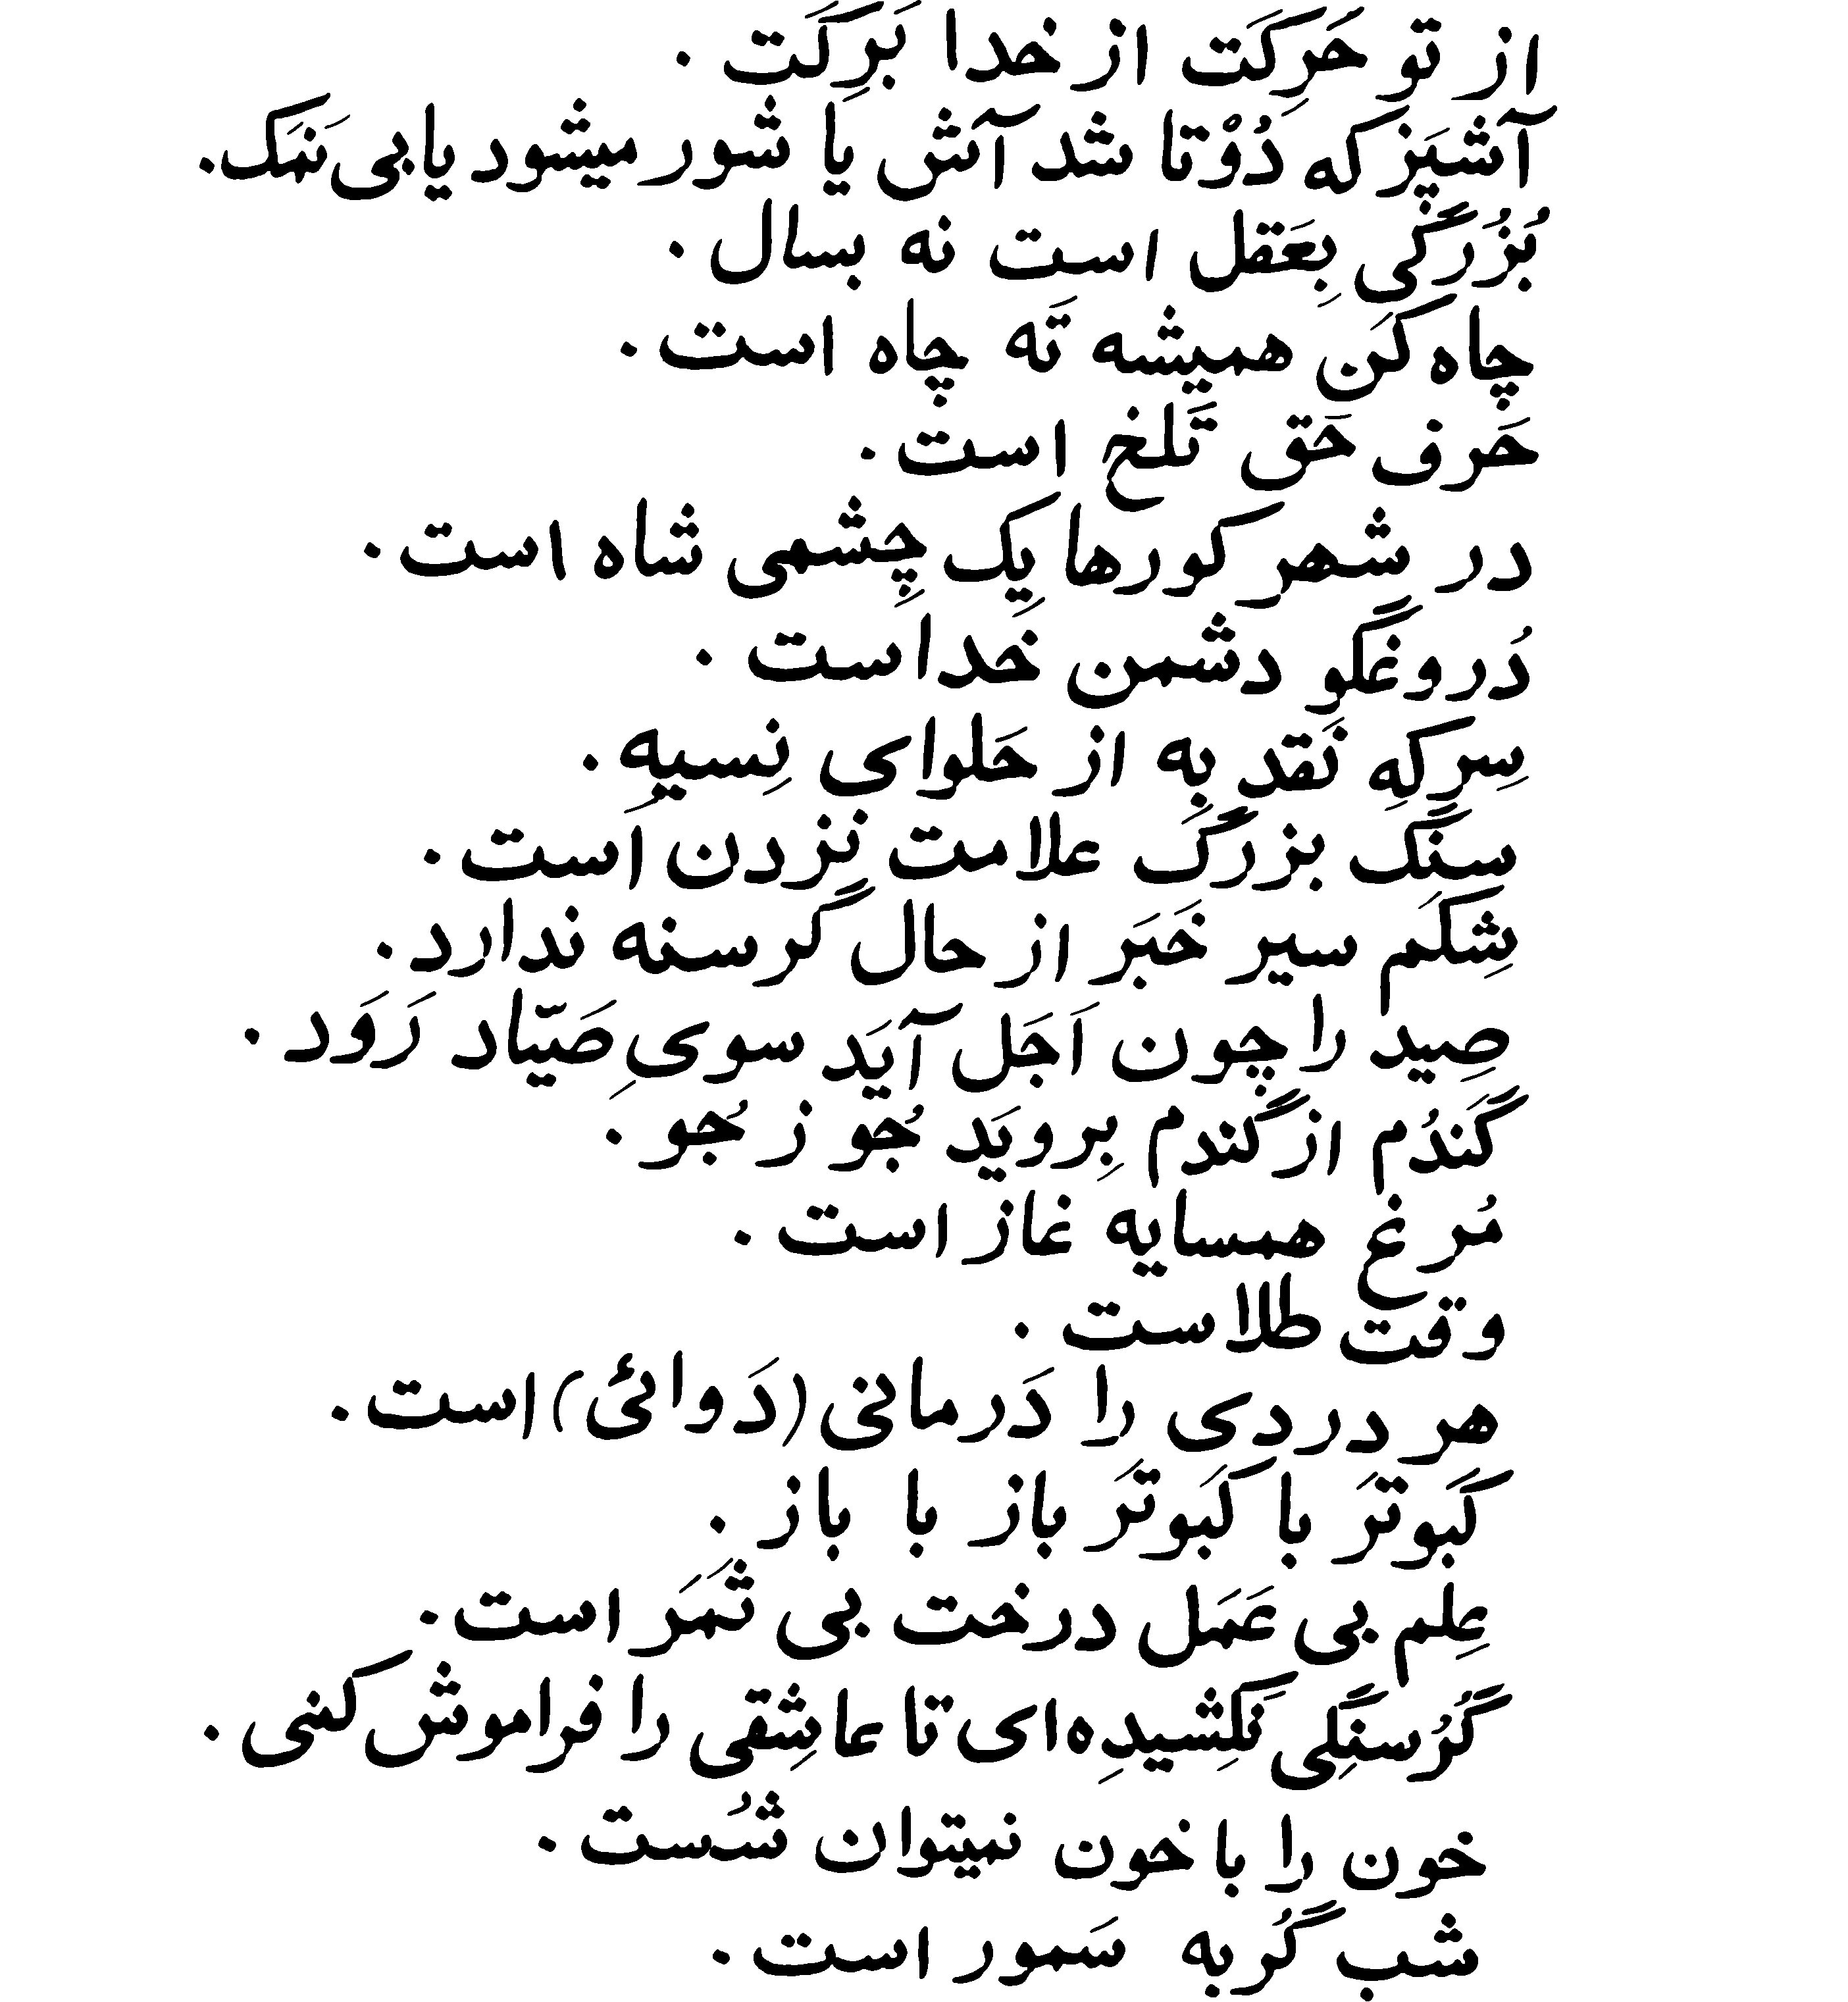 از تو حَرِکَت از خدا بَرِکَت .
آشپَز که دُوْتا شد آش یا شور میشود یا بی نَمَک.
بُزُرگی بِعَقل است نه بسال .
چاه کَن همیشه تَه چاه است .
حَرف حَق تَلخ است .
در شهر کورها یک چِشمی شاه است .
دُروغگو دشمن خَداست .
سِرکِه نَقد بِه از حَلوای نِسیِه .
سنگ بزرگ علامت نَزدن است .
شِکَم سیر خَبَر از حال گرسنه ندارد .
صِید را چون اَجَل آیَد سویِ صَیّاد رَوَد .
گَندُم از گندم بِرویَد جُو ز جُو .
مُرغ همسایه غاز است .
وقت طلاست .
هر دردی را دَرمانی (دَوائی) است .
کَبوتَر با کَبوتَر باز با باز .
عِلم بی عَمَل درخت بی ثَمَر است .
گُرُسنِگی نَکِشیدِه ای تا عاشِقی را فراموش کنی .
خون را با خون نمیتوان شُست .
شب گُربه سَمور است .